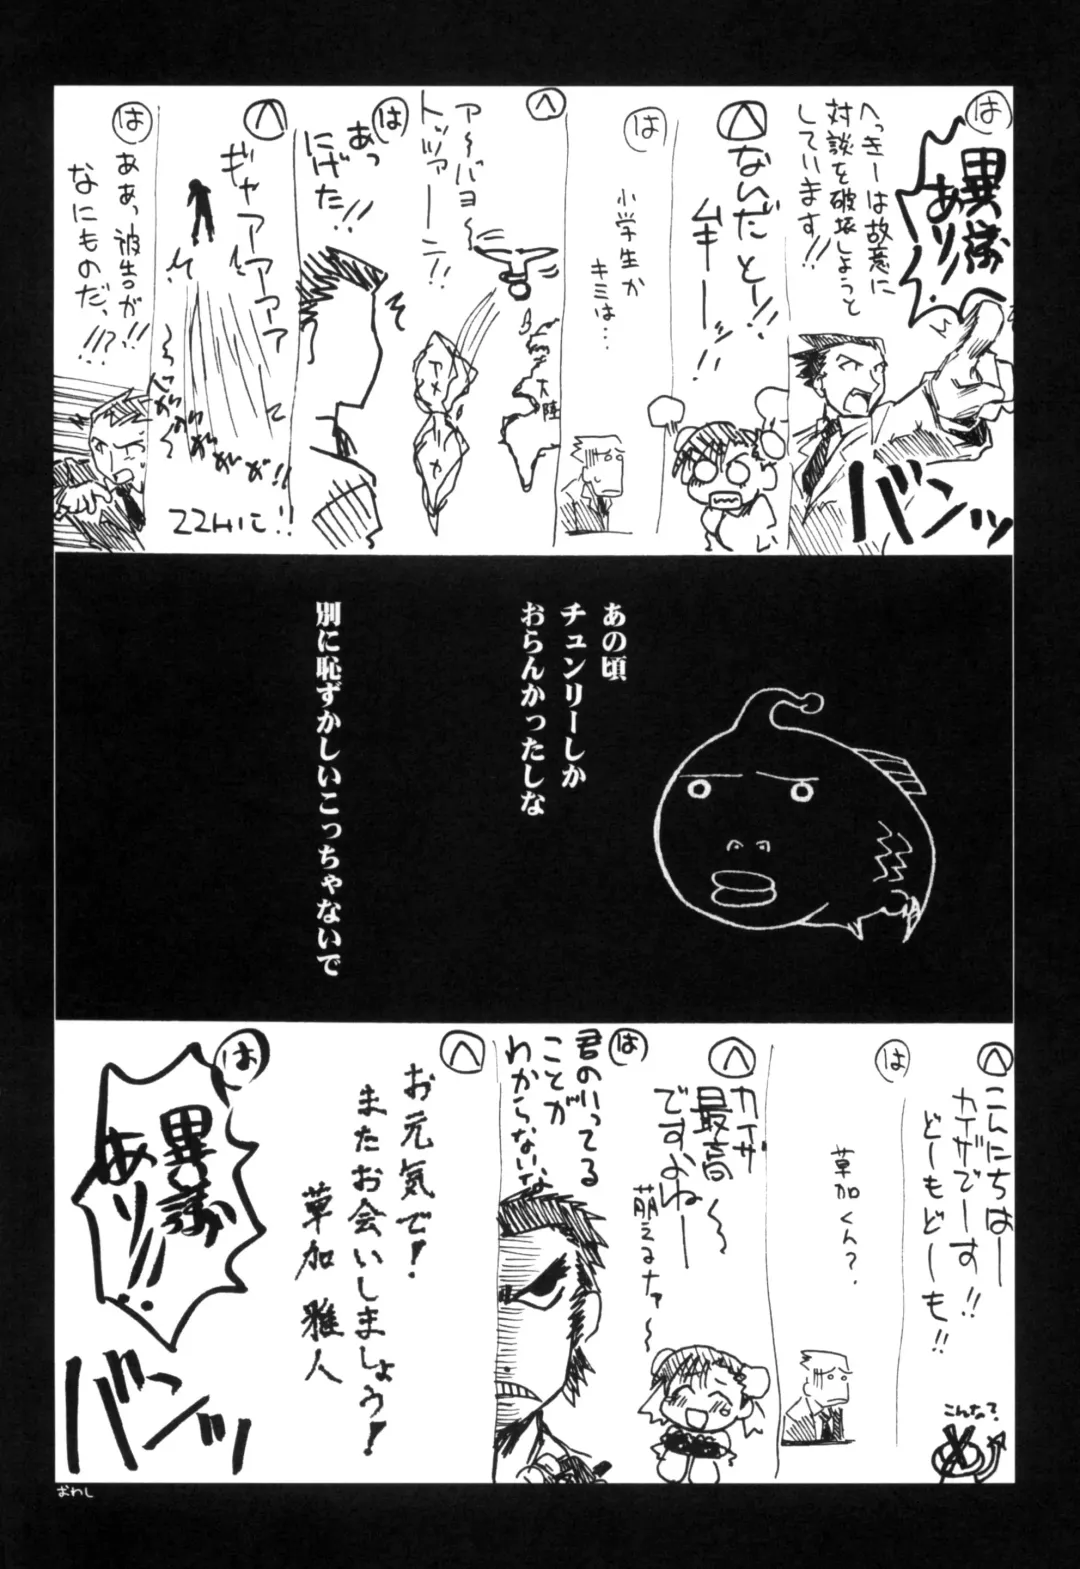 は
異議
あり!!
へっきーは故意に
対談を破壊しようと
しています!!
バンッ
へ
なんだとー!!
ムキーーッ!!
は
小学生か
キミは…
へ
ア〜バヨ〜
トッツァーーン!!
大陸
アメリカ
は
あっ
にげた!!
へ
ギャアアアアアア
は
ああっ被告が!!
なにものだっ!!?
あの頃
チュンリーしか
おらんかったしな
別に恥ずかしいこっちゃないで
へ
こんにちはー
カイザでーす!!
どーもどーも!!
こんなて?
は
草加くん?
へ
カイザ
最高〜
ですよねー
萌えるナァ〜
は
君のいってる
ことが
わからないな
へ
お元気で!
またお会いしましょう!
草加 雅人
は
異議
あり!!
バンッ
おわし